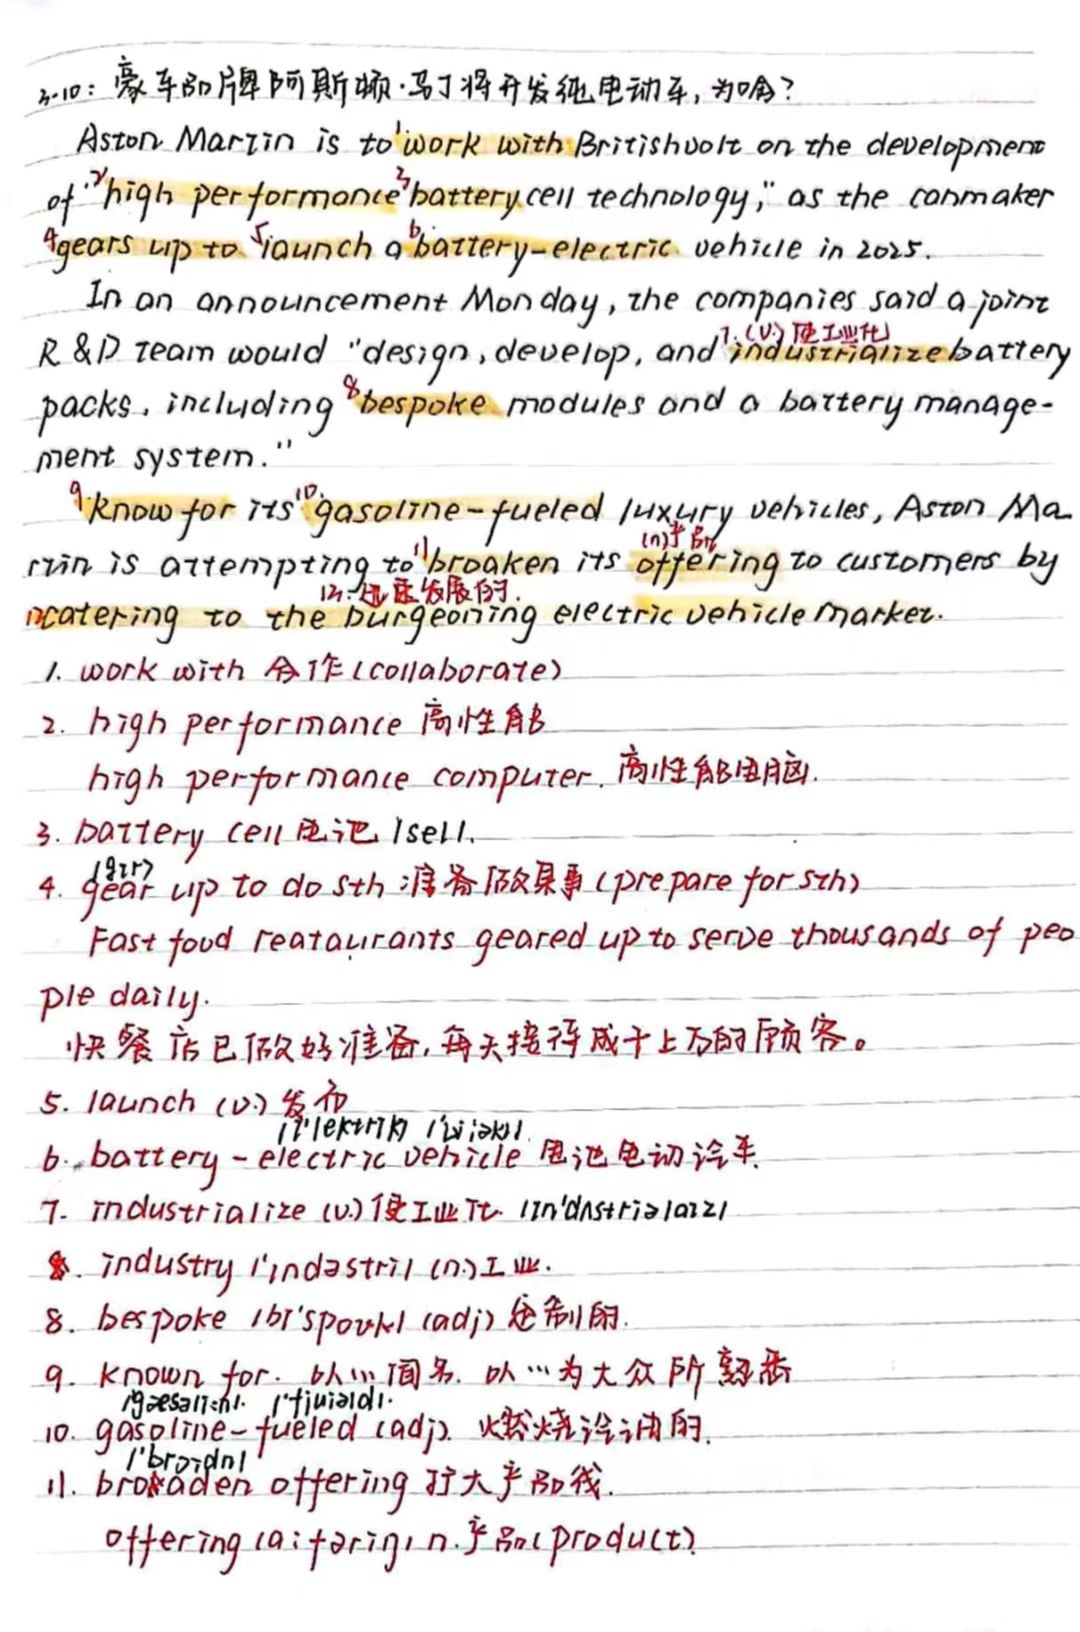 3-10: 豪车品牌阿斯顿·马丁将开发纯电动车,为啥?
Aston Martin is to 1 work with Britishvolt on the development
of "2 high performance 3 battery cell technology," as the carmaker
4 gears up to 5 launch a 6 battery-electric vehicle in 2025.
In an announcement Monday, the companies said a joint
7. (v.) 使工业化
R & D team would "design, develop, and industrialize battery
packs, including 8 bespoke modules and a battery manage-
ment system."
9. know for its 10. gasoline-fueled luxury vehicles, Aston Ma
(n) 产品
rtin is attempting to 11 broaken its offering to customers by
12. 迅速发展的.
catering to the burgeoning electric vehicle market.
1. work with 合作 (collaborate)
2. high performance 高性能
high performance computer. 高性能电脑.
3. battery cell 电池 /sell.
/gɪr/
4. gear up to do sth 准备做某事 (prepare for sth)
Fast food reataurants geared up to serve thousands of peo
ple daily.
快餐店已做好准备,每天接待成千上万的顾客。
5. launch (v.) 发布
/ɪ'lektrɪk/ /'viːəkl/
6. battery-electric vehicle 电池电动汽车.
7. industrialize (v.) 使工业化. /ɪn'dʌstriəlaɪz/
8. industry /'ɪndəstri/ (n.) 工业.
8. bespoke /bɪ'spoʊk/ (adj) 定制的.
9. known for. 以…闻名. 以…为大众所熟悉
/gæsəliːn/. /'fjuːəld/.
10. gasoline-fueled (adj). 燃烧汽油的.
/'brɔːdn/
11. broaden offering 扩大产品线.
offering /ɑːfərɪŋ/ n. 产品 (product)